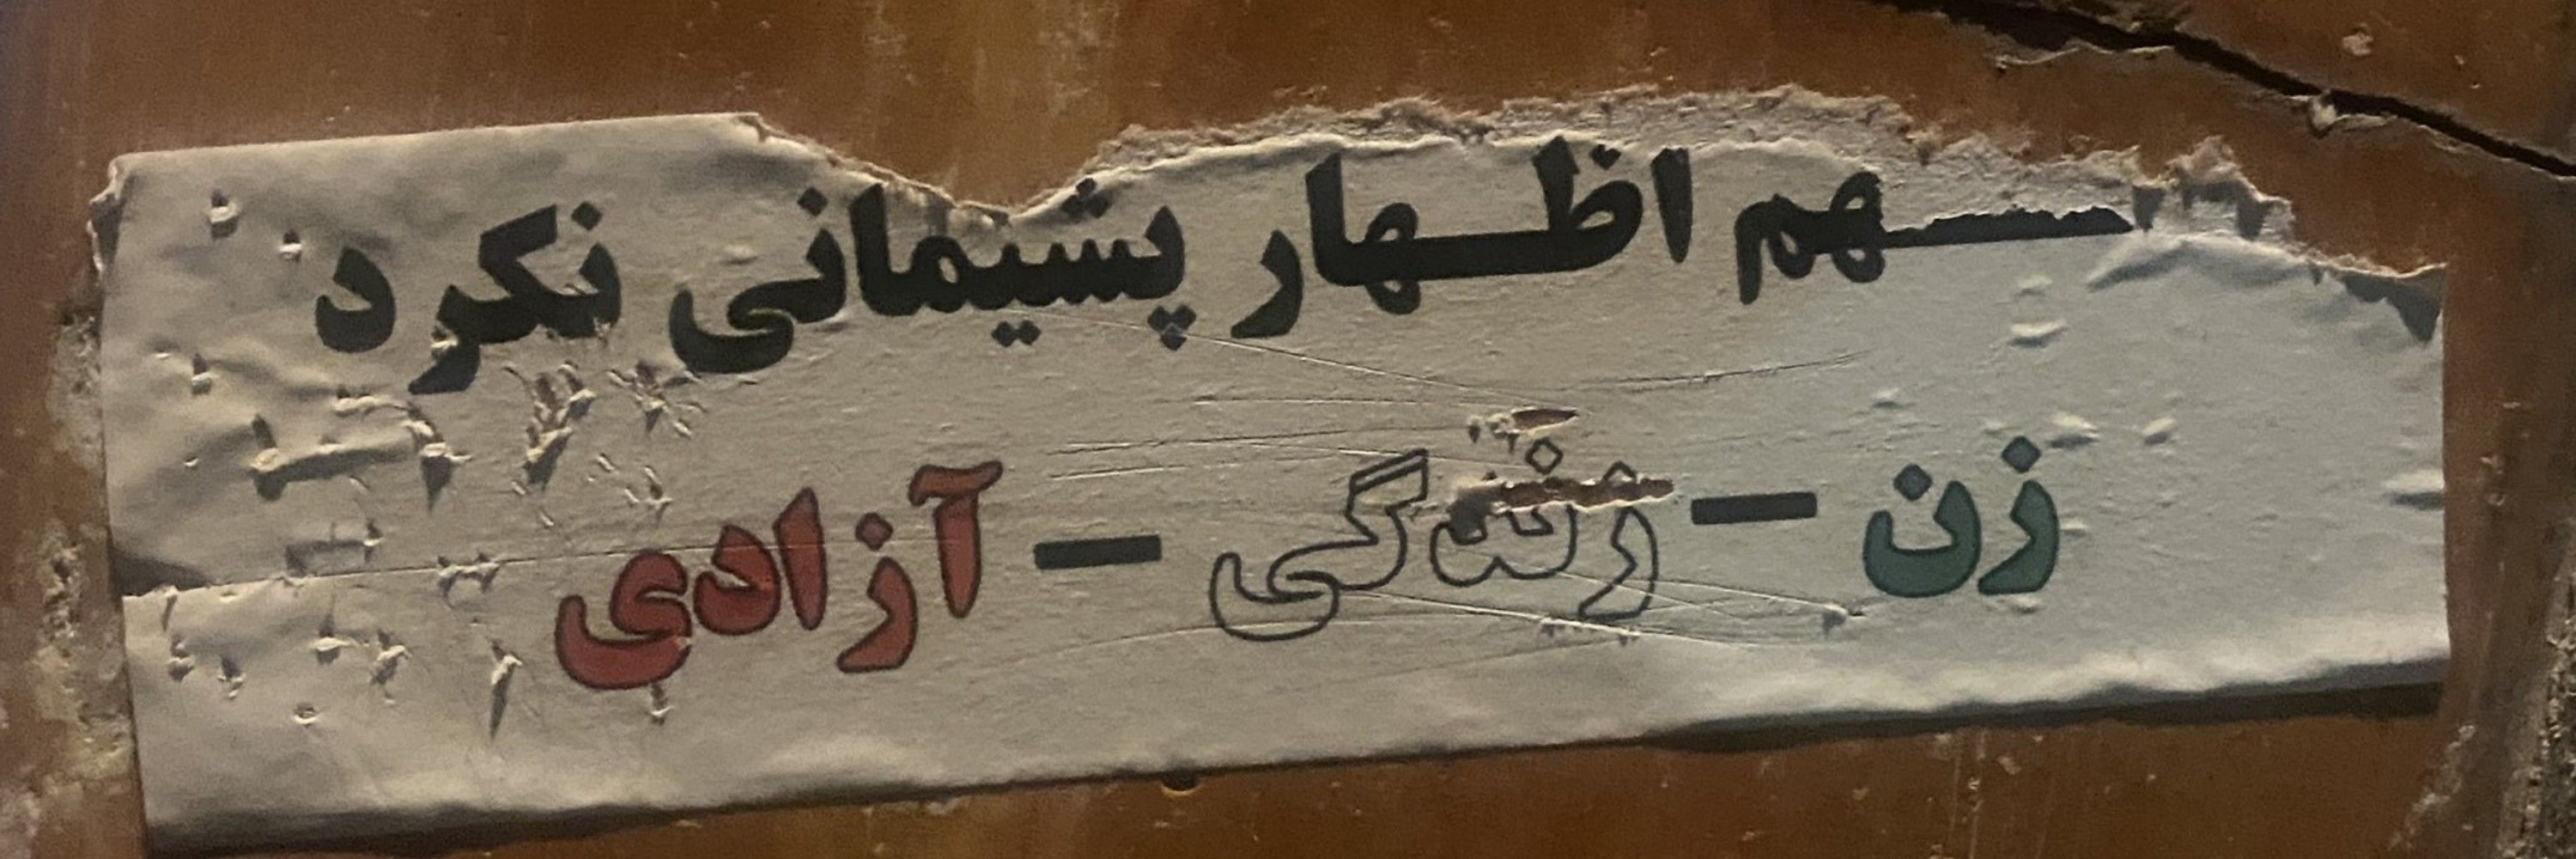 اظهار پشیمانی نکرد
زن - زندگی - آزادی